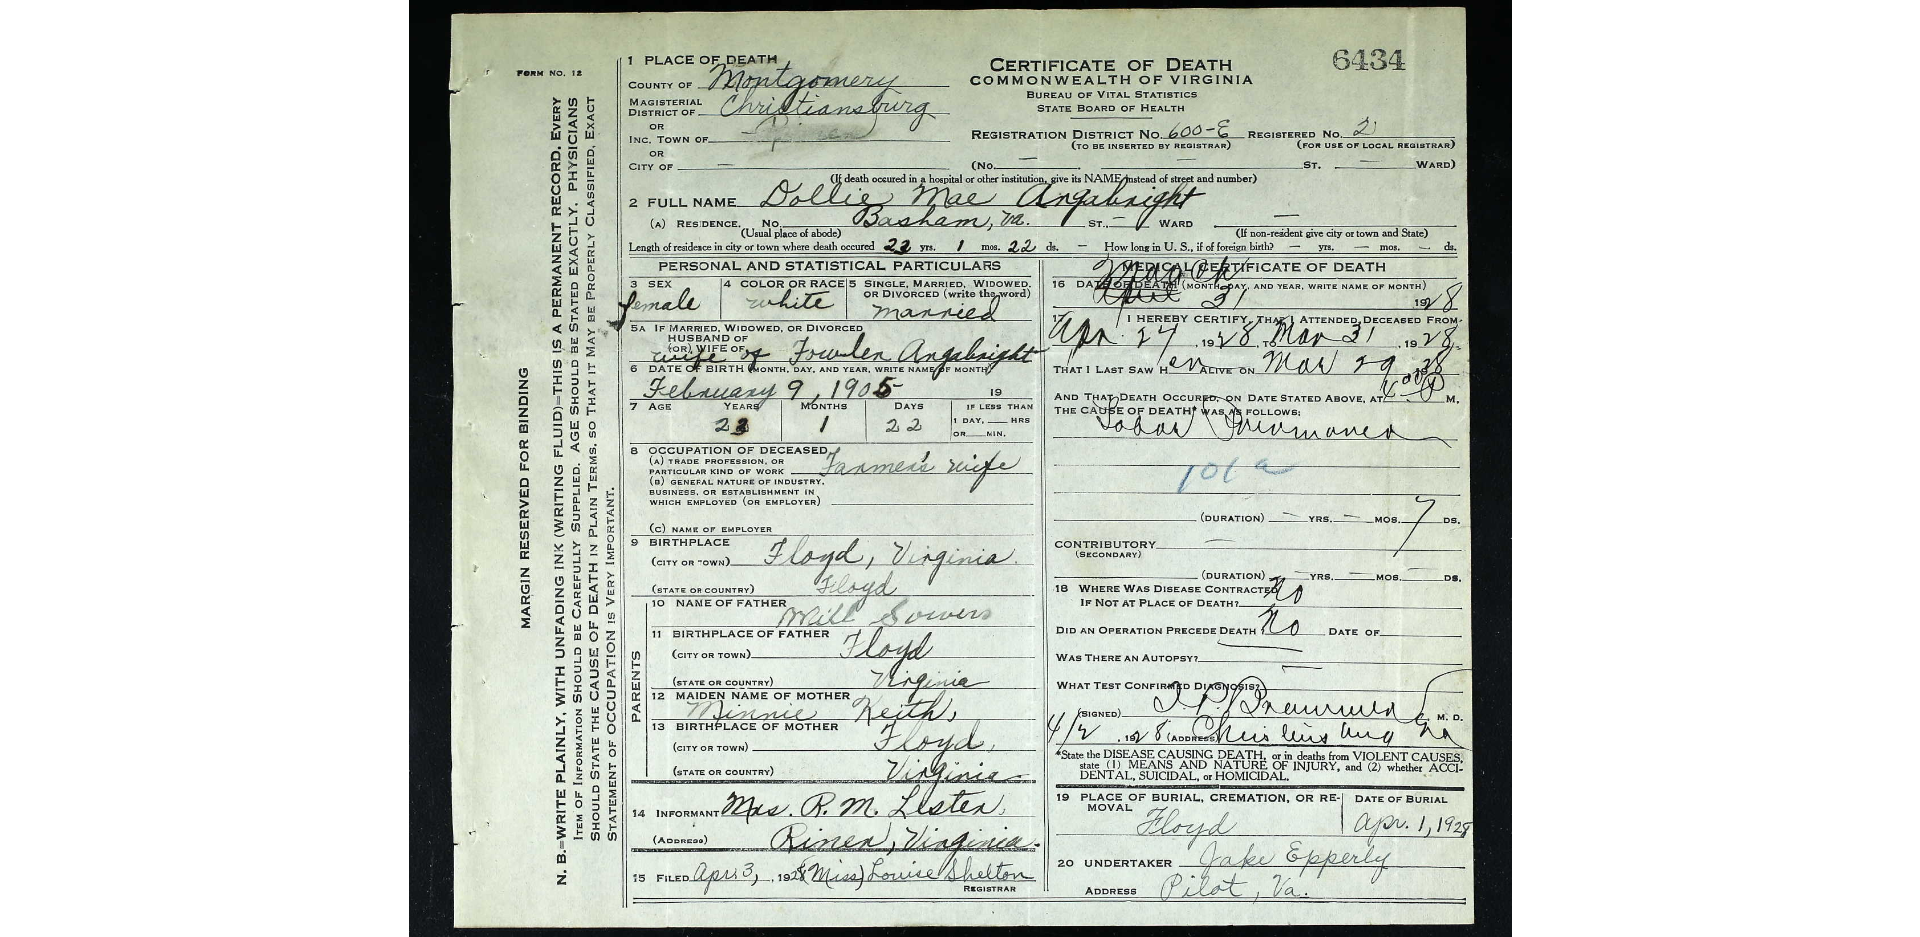 FORM NO. 12
MARGIN RESERVED FOR BINDING
N. B.=WRITE PLAINLY, WITH UNFADING INK (WRITING FLUID)=THIS IS A PERMANENT RECORD. EVERY
ITEM OF INFORMATION SHOULD BE CAREFULLY SUPPLIED. AGE SHOULD BE STATED EXACTLY. PHYSICIANS
SHOULD STATE THE CAUSE OF DEATH IN PLAIN TERMS, SO THAT IT MAY BE PROPERLY CLASSIFIED. EXACT
STATEMENT OF OCCUPATION IS VERY IMPORTANT.
1 PLACE OF DEATH
COUNTY OF Montgomery
MAGISTERIAL DISTRICT OF Christiansburg
OR
INC. TOWN OF
OR
CITY OF —
CERTIFICATE OF DEATH
COMMONWEALTH OF VIRGINIA
BUREAU OF VITAL STATISTICS
STATE BOARD OF HEALTH
6434
REGISTRATION DISTRICT NO. 600-E REGISTERED NO. 2
(TO BE INSERTED BY REGISTRAR) (FOR USE OF LOCAL REGISTRAR)
(NO. — — ST. — WARD)
(If death occured in a hospital or other institution, give its NAME instead of street and number)
2 FULL NAME Dollie Mae Angabright
(A) RESIDENCE, NO. Basham, Va. ST. — WARD —
(Usual place of abode) (If non-resident give city or town and State)
Length of residence in city or town where death occured 23 yrs. 1 mos. 22 ds. — How long in U. S., if of foreign birth? — yrs. — mos. — ds.
PERSONAL AND STATISTICAL PARTICULARS
3 SEX female
4 COLOR OR RACE white
5 SINGLE, MARRIED, WIDOWED, OR DIVORCED (write the word) married
5A IF MARRIED, WIDOWED, OR DIVORCED
HUSBAND OF
(OR) WIFE OF wife of Fowler Angabright
6 DATE OF BIRTH (MONTH, DAY, AND YEAR, WRITE NAME OF MONTH)
February 9, 1905 19
7 AGE YEARS MONTHS DAYS IF LESS THAN
23 1 22 1 DAY, HRS
OR MIN.
8 OCCUPATION OF DECEASED
(A) TRADE, PROFESSION, OR
PARTICULAR KIND OF WORK Farmer's wife
(B) GENERAL NATURE OF INDUSTRY,
BUSINESS, OR ESTABLISHMENT IN
WHICH EMPLOYED (OR EMPLOYER)
(C) NAME OF EMPLOYER
9 BIRTHPLACE
(CITY OR TOWN) Floyd, Virginia.
(STATE OR COUNTRY) Floyd
PARENTS
10 NAME OF FATHER
Will Sowers
11 BIRTHPLACE OF FATHER
(CITY OR TOWN) Floyd
(STATE OR COUNTRY) Virginia
12 MAIDEN NAME OF MOTHER
Minnie Keith,
13 BIRTHPLACE OF MOTHER
(CITY OR TOWN) Floyd,
(STATE OR COUNTRY) Virginia
14 INFORMANT Mrs. R. M. Lester,
(ADDRESS) Riner, Virginia.
15 FILED Apr. 3, 1928 (Miss) Louise Shelton
REGISTRAR
MEDICAL CERTIFICATE OF DEATH
March
16 DATE OF DEATH (MONTH, DAY, AND YEAR, WRITE NAME OF MONTH)
April 31 1928
17 I HEREBY CERTIFY, THAT I ATTENDED DECEASED FROM
Apr. 24, 1928, TO Mar 31, 1928,
THAT I LAST SAW Her ALIVE ON Mar 29 1928
AND THAT DEATH OCCURED, ON DATE STATED ABOVE, AT M.
THE CAUSE OF DEATH* WAS AS FOLLOWS:
Lobar Pneumonia
101a
(DURATION) — YRS. — MOS. 7 DS.
CONTRIBUTORY —
(SECONDARY)
(DURATION) — YRS. — MOS. — DS.
18 WHERE WAS DISEASE CONTRACTED
IF NOT AT PLACE OF DEATH? No
DID AN OPERATION PRECEDE DEATH? No DATE OF
WAS THERE AN AUTOPSY?
WHAT TEST CONFIRMED DIAGNOSIS?
(SIGNED) M. D.
4/2, 1928 (ADDRESS) Christiansburg Va
*State the DISEASE CAUSING DEATH, or in deaths from VIOLENT CAUSES,
state (1) MEANS AND NATURE OF INJURY, and (2) whether ACCI-
DENTAL, SUICIDAL, or HOMICIDAL.
19 PLACE OF BURIAL, CREMATION, OR RE-
MOVAL
Floyd
DATE OF BURIAL
Apr. 1, 1928
20 UNDERTAKER Jake Epperly
ADDRESS Pilot, Va.